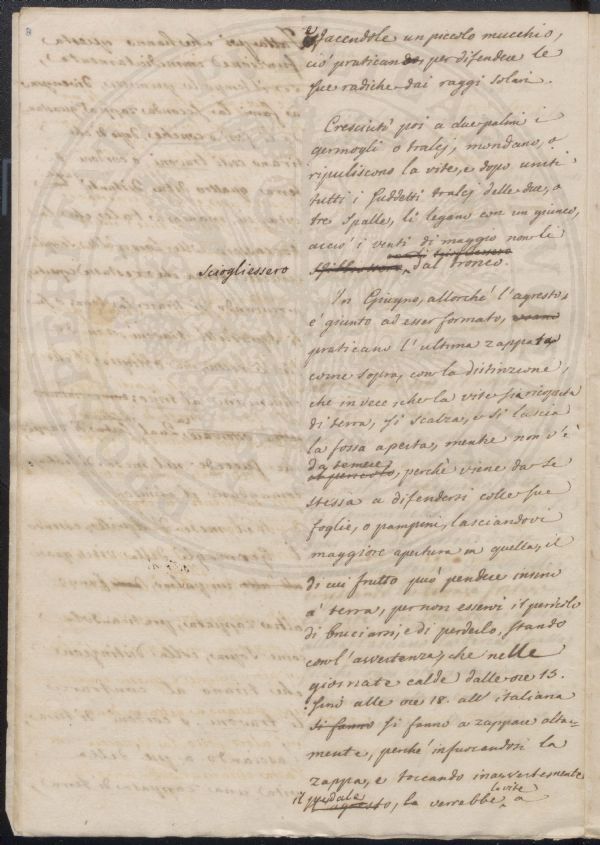 facendole un piccolo mucchio,
ciò pratican do, per difendere le
sue radiche dai raggi solari.
Cresciuti poi a due palmi i
germogli o tralcj, mondano, o
ripuliscono la vite, e dopo uniti
tutti i suddetti tralcj delle due, o
tre spalle, li legano con un giunco,
acciò i venti di maggio non li
sciogliessero
dal tronco.
In Giugno, allorché l'agresto,
è giunto ad esser formato,
praticano l'ultima zappata,
come sopra, con la distinzione,
che invece, che la vite sia ricoperta
di terra, si scalza, e si lascia
la fossa aperta, mentre non v'è
da temere
, perchè viene da se
stessa a difendersi colle sue
foglie, o pampini, lasciandovi
maggiore apertura in quella, il
di cui frutto può pendere insino
a' terra, per non esservi il pericolo
di bruciarsi, e di perderlo, stando
con l'avvertenza, che nelle
giornate calde dalle ore 15.
sino alle ore 18. all'italiana
si fanno si fanno a zappare alta=
mente, perchè infuocandosi la
zappa, e toccando inavvertemente
il pedale, la verrebbe la vite a